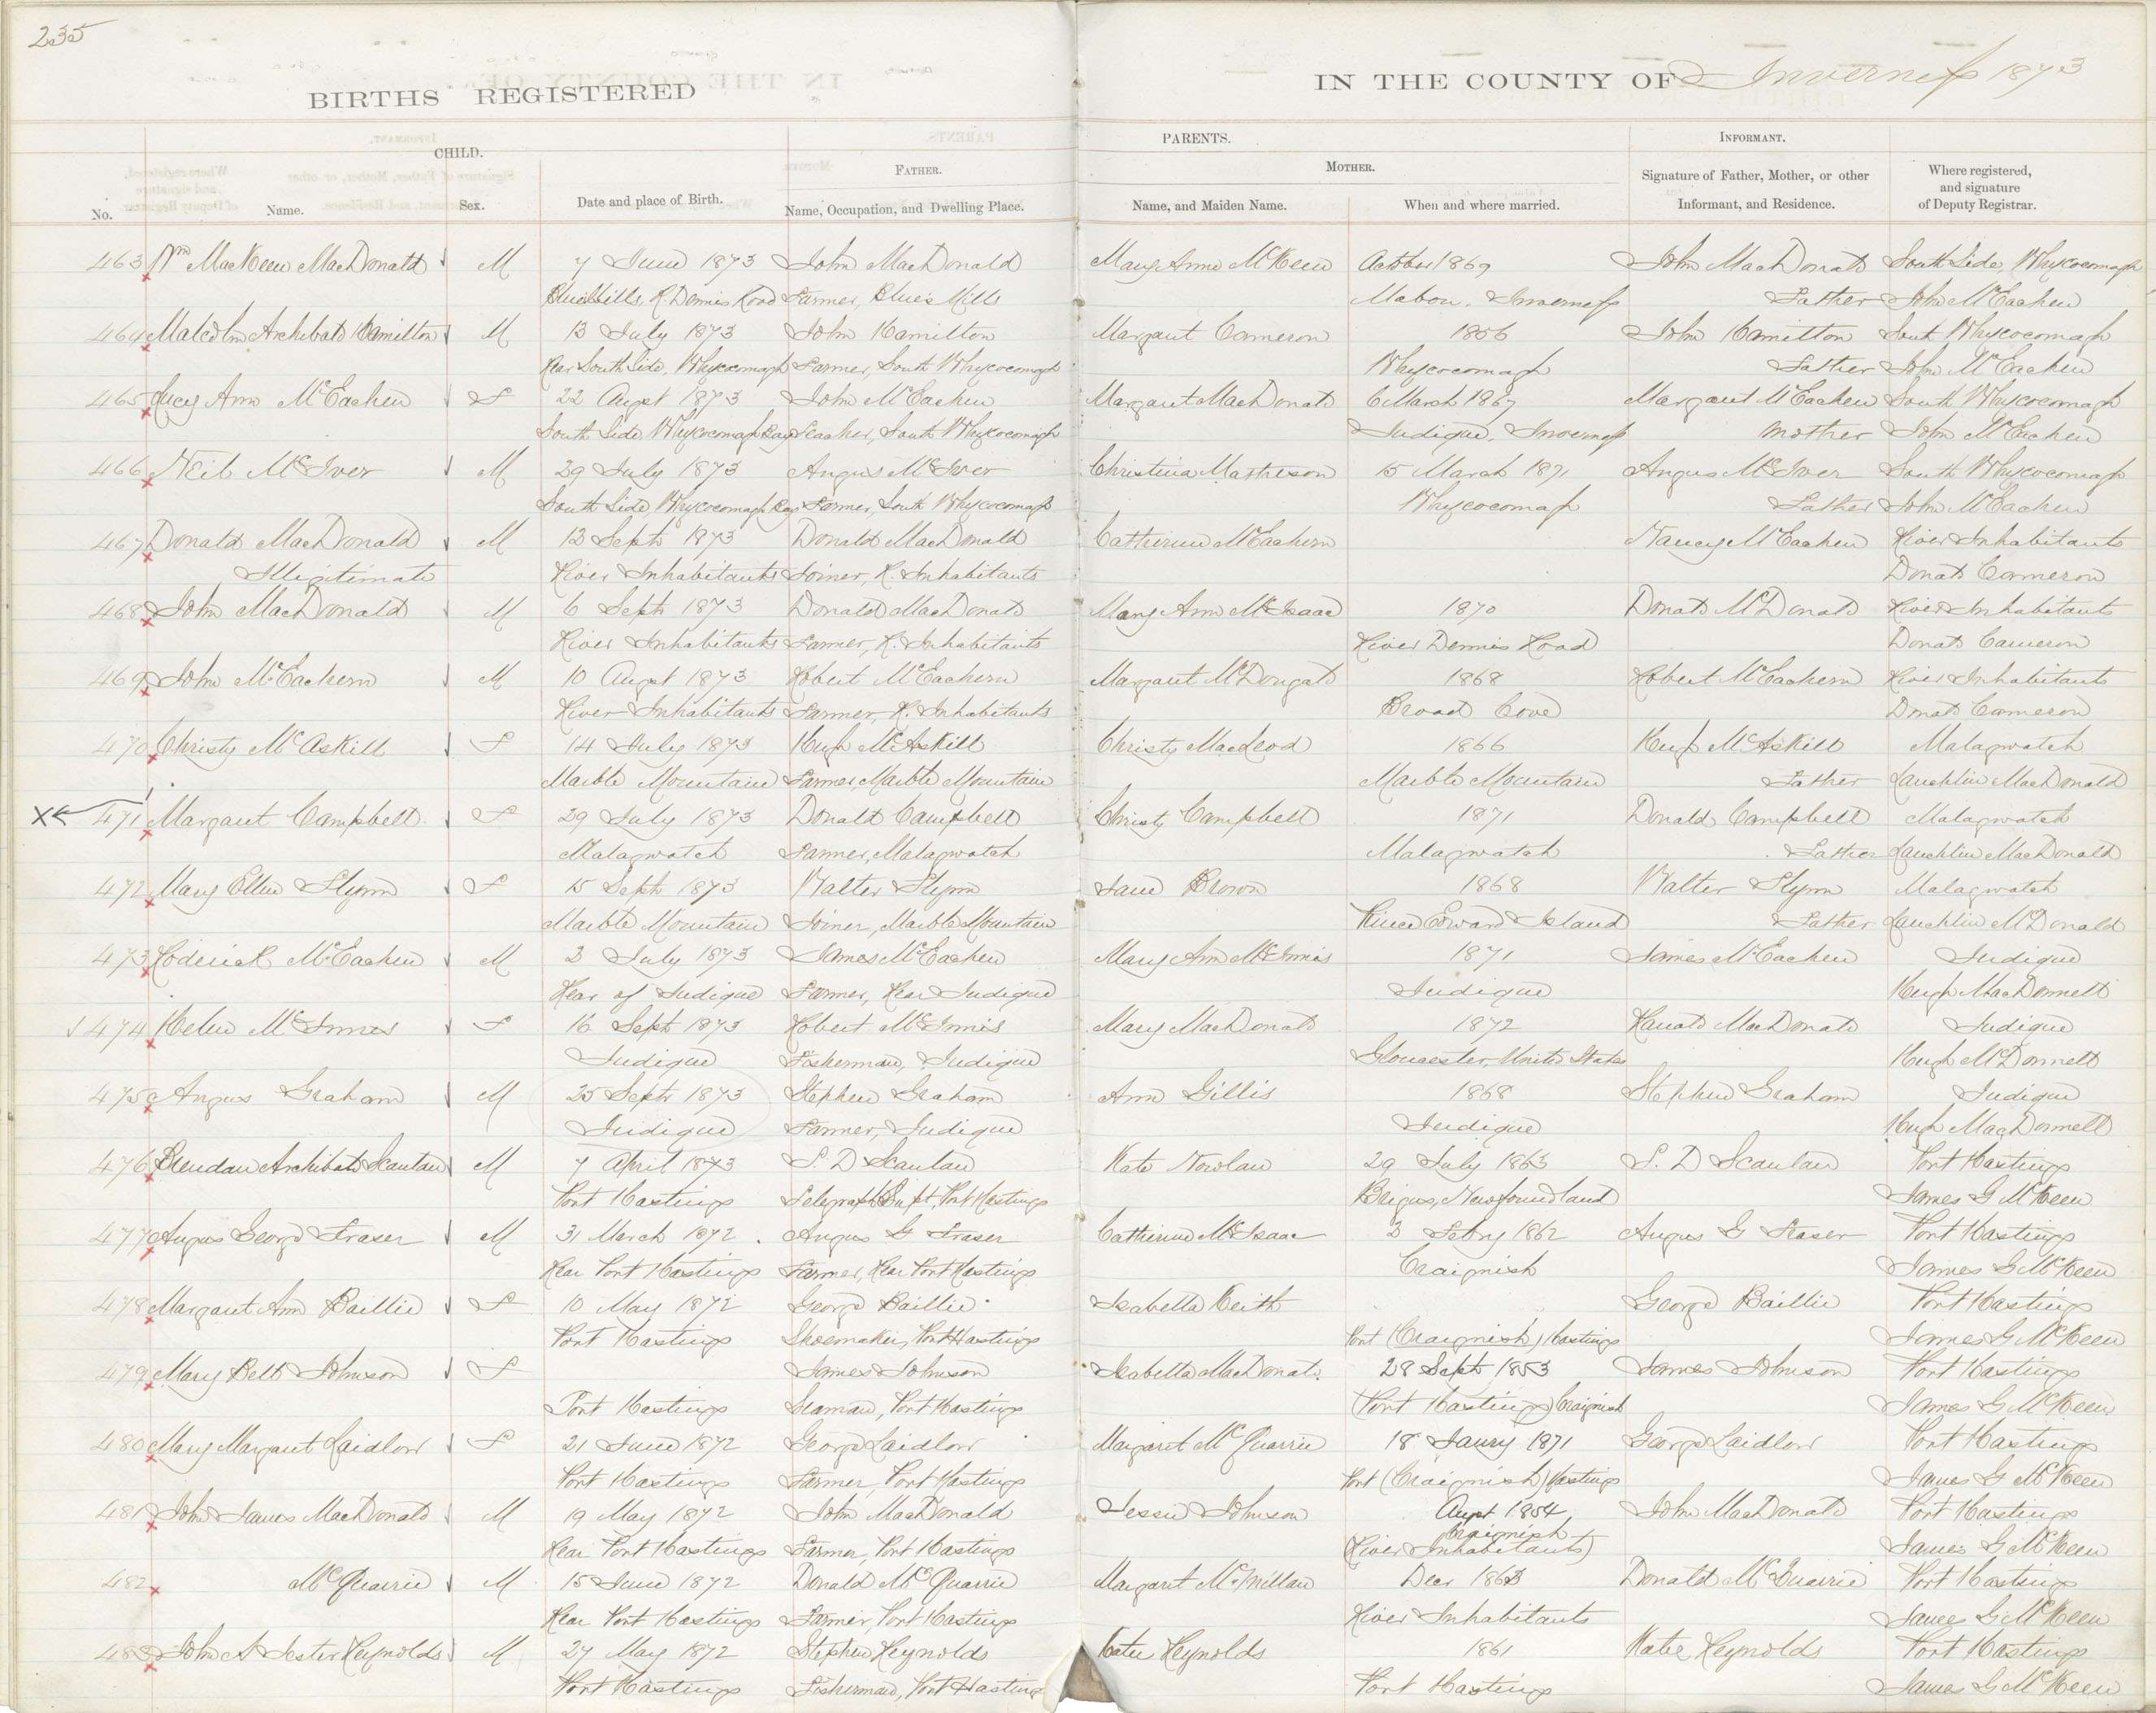 235
BIRTHS REGISTERED IN THE COUNTY OF Inverness 1873
CHILD. PARENTS. INFORMANT.
FATHER. MOTHER.
No. Name. Sex. Date and place of Birth. Name, Occupation, and Dwelling Place. Name, and Maiden Name. When and where married. Signature of Father, Mother, or other Informant, and Residence. Where registered, and signature of Deputy Registrar.
463 Wm MacKeen MacDonald M 7 June 1873 John MacDonald Mary Anne McKeen October 1869 John MacDonald South Side Whycocomagh
Blues Mills, R. Dennis Road Farmer, Blue's Mills Mabou, Inverness Father John McEachen
464 Malcolm Archibald Hamilton M 13 July 1873 John Hamilton Margaret Cameron 1856 John Hamilton South Whycocomagh
Rear South Side, Whycocomagh Farmer, South Whycocomagh Whycocomagh Father John McEachen
465 Lucy Ann McEachen F 22 Augst 1873 John McEachen Margaret MacDonald 6 March 1867 Margaret McEachen South Whycocomagh
South Side Whycocomagh Bay Teacher, South Whycocomagh Judique, Inverness Mother John McEachen
466 Neil McIver M 29 July 1873 Angus McIver Christina Matheson 15 March 1871 Angus McIver South Whycocomagh
South Side Whycocomagh Bay Farmer, South Whycocomagh Whycocomagh Father John McEachen
467 Donald MacDonald M 12 Sept 1873 Donald MacDonald Catherine McEachern Nancy McEachen River Inhabitants
Illegitimate River Inhabitants Joiner, R. Inhabitants Donald Cameron
468 John MacDonald M 6 Sept 1873 Donald MacDonald Mary Ann McIsaac 1870 Donald McDonald River Inhabitants
River Inhabitants Farmer, R. Inhabitants River Dennis Road Donald Cameron
469 John McEachern M 10 Augst 1873 Robert McEachern Margaret McDougald 1868 Robert McEachern River Inhabitants
River Inhabitants Farmer, R. Inhabitants Broad Cove Donald Cameron
470 Christy McAskill F 14 July 1873 Hugh McAskill Christy MacLeod 1866 Hugh McAskill Malagwatch
Marble Mountain Farmer, Marble Mountain Marble Mountain Father Lauchlin MacDonald
X 471 Margaret Campbell F 29 July 1873 Donald Campbell Christy Campbell 1871 Donald Campbell Malagwatch
Malagwatch Farmer, Malagwatch Malagwatch Father Lauchlin MacDonald
472 Mary Ellen Flynn F 15 Sept 1873 Walter Flynn Jane Brown 1868 Walter Flynn Malagwatch
Marble Mountain Joiner, Marble Mountain Prince Edward Island Father Lauchlin McDonald
473 Roderick McEachen M 2 July 1873 James McEachen Mary Ann McInnis 1871 James McEachen Judique
Rear of Judique Farmer, Rear Judique Judique Hugh MacDonnell
474 Helen McInnes F 16 Sept 1873 Robert McInnis Mary MacDonald 1872 Ranald MacDonald Judique
Judique Fisherman, Judique Gloucester, United States Hugh McDonnell
475 Angus Graham M 25 Sept 1873 Stephen Graham Ann Gillis 1868 Stephen Graham Judique
Judique Farmer, Judique Judique Hugh MacDonnell
476 Brendan Archibald Scanlan M 7 April 1873 S. D Scanlan Kate Nowlan 29 July 1863 S. D Scanlan Port Hastings
Port Hastings Telegraph Supt, Port Hastings Brigus, Newfoundland James G McKeen
477 Angus George Fraser M 31 March 1872 Angus G Fraser Catherine McIsaac 3 Febry 1862 Angus G Fraser Port Hastings
Rear Port Hastings Farmer, Rear Port Hastings Craignish James G McKeen
478 Margaret Ann Baillie F 10 May 1872 George Baillie Isabella Keith George Baillie Port Hastings
Port Hastings Shoemaker, Port Hastings Port (Craignish) Hastings James G McKeen
479 Mary Bell Johnson F James Johnson Isabella MacDonald 28 Sept 1853 James Johnson Port Hastings
Port Hastings Seaman, Port Hastings (Port Hastings) Craignish James G McKeen
480 Mary Margaret Laidlow F 21 June 1872 George Laidlow Margaret McQuarrie 18 Janry 1871 George Laidlow Port Hastings
Port Hastings Farmer, Port Hastings Port (Craignish) Hastings James G McKeen
481 John James MacDonald M 19 May 1872 John MacDonald Jessie Johnson Augst 1854 John MacDonald Port Hastings
Craignish
Rear Port Hastings Farmer, Port Hastings (River Inhabitants) James G McKeen
482 McQuarrie M 15 June 1872 Donald McQuarrie Margaret McMillan Decr 1863 Donald McQuarrie Port Hastings
Rear Port Hastings Farmer, Port Hastings River Inhabitants James G McKeen
483 John A Lester Reynolds M 27 May 1872 Stephen Reynolds Katie Reynolds 1861 Katie Reynolds Port Hastings
Port Hastings Fisherman, Port Hastings Port Hastings James G McKeen